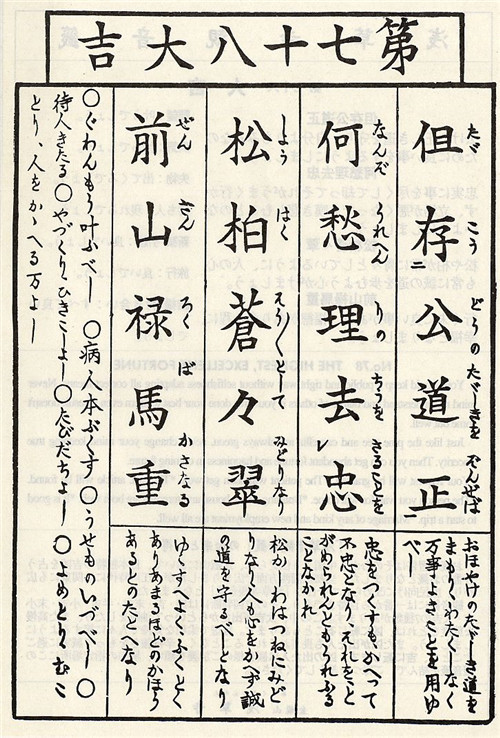 第七十八大吉
たゞ こう どうのたゞしきを ぞんせば
但存公道正
おほやけのたゞしき道を
まもりわたくしなく
万事よきことを用ゆ
べし
なんぞ うれへん
何愁理去忠
忠をつくすもかへって
不忠となりそれをこと
がめられんともうれふる
ことなかれ
しよう はく そう〱として みどりなり
松柏蒼々翠
松かしわはつねにみど
りなり人も心をかへず誠
の道を守るべしとなり
ぜん ざん ろく ば かさなる
前山禄馬重
ゆくすへよりふくとく
ありあまるほどのかほり
あるとのたとへなり
〇ぐわんもう叶ふべし 〇病人本ぶくす〇うせものいづべし〇
待人きたる〇やづくりひきこしよし〇たびだちよし 〇よめとりむこ
とり、人をかゝへる万よし